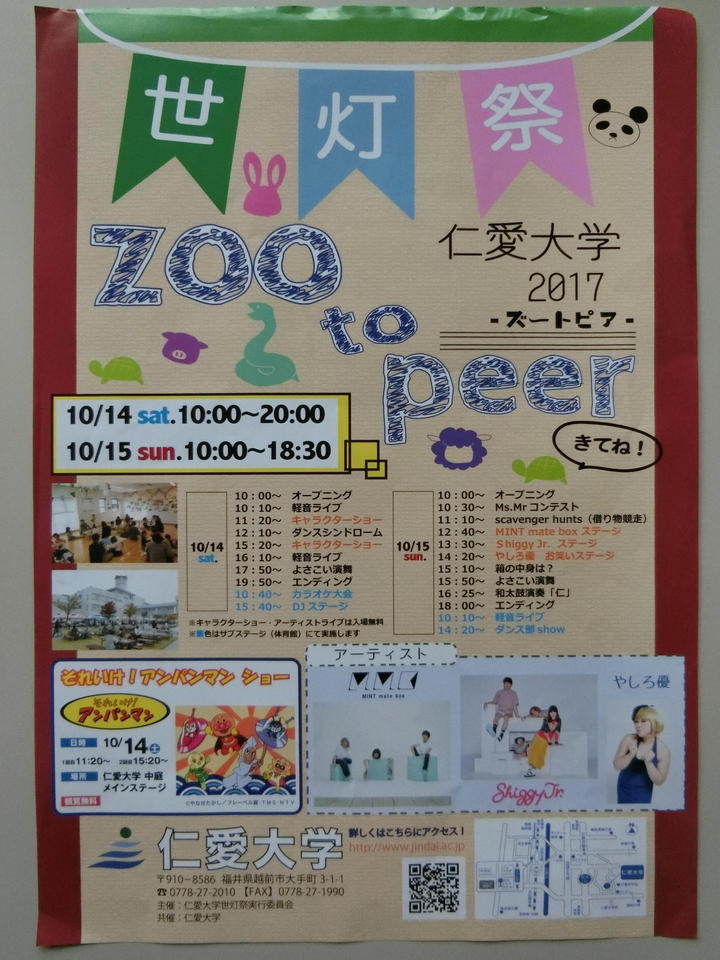 世灯祭
ZOO
to
peer
仁愛大学
2017
-ズートピア-
きてね！
10/14 sat.10:00～20:00
10/15 sun.10:00～18:30
10/14
sat.
10：00～ オープニング
10：10～ 軽音ライブ
11：20～ キャラクターショー
12：10～ ダンスシンドローム
15：20～ キャラクターショー
16：10～ 軽音ライブ
17：50～ よさこい演舞
19：50～ エンディング
10：40～ カラオケ大会
15：40～ DJステージ
※キャラクターショー・アーティストライブは入場無料
※■色はサブステージ（体育館）にて実施します
10/15
sun.
10：00～ オープニング
10：30～ Ms.Mrコンテスト
11：10～ scavenger hunts（借り物競走）
12：40～ MINT mate box ステージ
13：30～ Shiggy Jr. ステージ
14：20～ やしろ優 お笑いステージ
15：10～ 箱の中身は？
15：50～ よさこい演舞
16：25～ 和太鼓演奏「仁」
18：00～ エンディング
10：10～ 軽音ライブ
14：20～ ダンス部show
それいけ！アンパンマン ショー
それいけ！
アンパンマン
日時 10/14土
1回目11:20～ 2回目15:20～
場所 仁愛大学 中庭
メインステージ
観覧無料
©やなせたかし／フレーベル館・TMS・NTV
アーティスト
MMC
MINT mate box
Shiggy Jr.
やしろ優
仁愛大学
〒910-8586 福井県越前市大手町3-1-1
☎0778-27-2010 【FAX】0778-27-1990
主催：仁愛大学世灯祭実行委員会
共催：仁愛大学
詳しくはこちらにアクセス！
http://www.jindai.ac.jp
仁愛大学